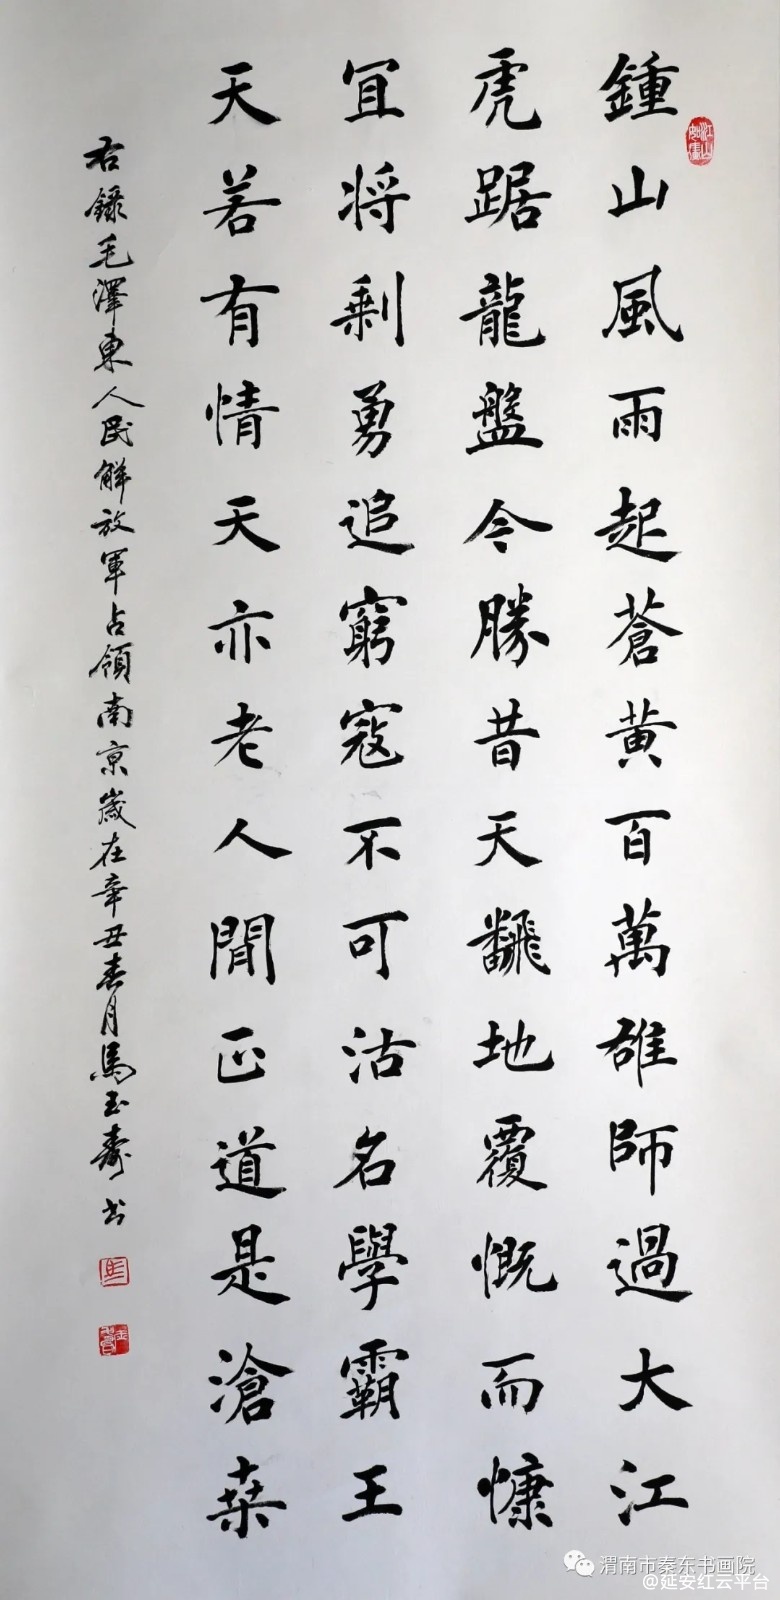 鍾山風雨起蒼黃百萬雄師過大江
虎踞龍盤今勝昔天飜地覆慨而慷
宜将剩勇追窮寇不可沽名學霸王
天若有情天亦老人間正道是滄桑
右錄毛澤東人民解放軍占領南京歲在辛丑春月馬玉壽书
江山如畫
渭南市秦东书画院
@延安红云平台